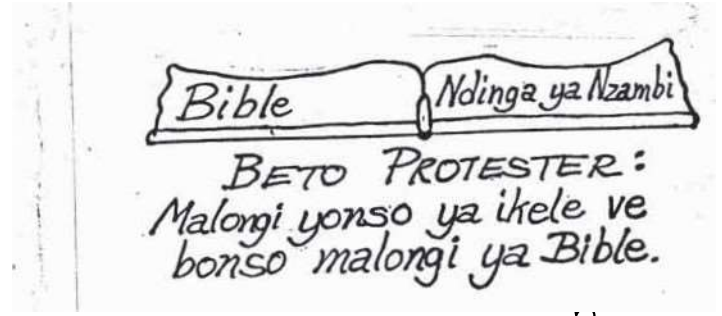 Bible
Ndinga ya Nzambi
BETO PROTESTER:
Malongi yonso ya ikele ve
bonso malongi ya Bible.